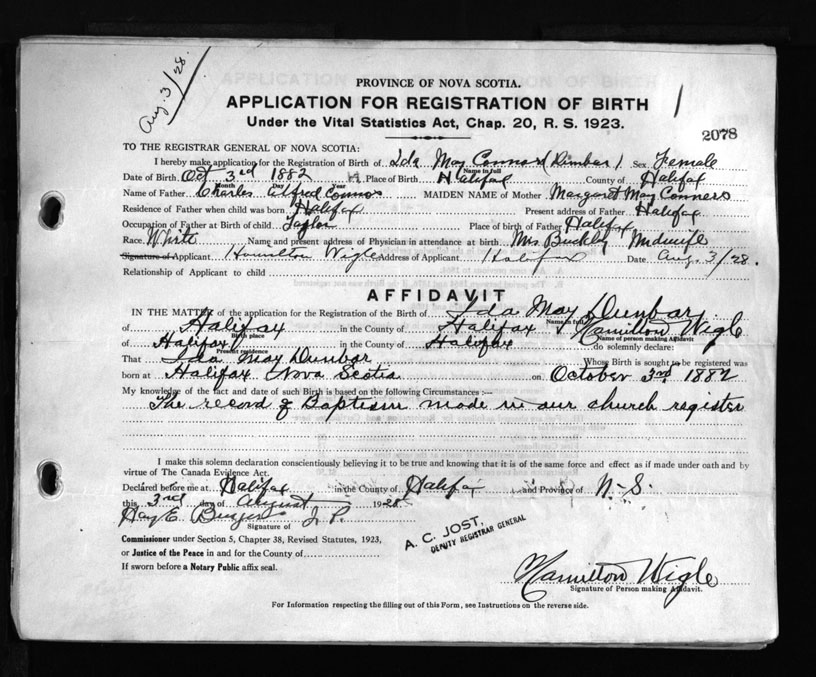 Aug. 3/28.
PROVINCE OF NOVA SCOTIA.
APPLICATION FOR REGISTRATION OF BIRTH
Under the Vital Statistics Act, Chap. 20, R. S. 1923.
2078
TO THE REGISTRAR GENERAL OF NOVA SCOTIA:
I hereby make application for the Registration of Birth of Ida May Connors (Dunbar) Sex Female
Name in full
Date of Birth Oct 3rd 1882 Place of Birth Halifax County of Halifax
Month Day Year
Name of Father Charles Alfred Connors MAIDEN NAME of Mother Margaret May Conners
Residence of Father when child was born Halifax Present address of Father Halifax
Occupation of Father at Birth of child Taylor Place of birth of Father Halifax
Race White Name and present address of Physician in attendance at birth Mrs. Buckley Midwife
Signature of Applicant Hamilton Wigle Address of Applicant Halifax Date Aug. 3/28.
Relationship of Applicant to child
AFFIDAVIT
IN THE MATTER of the application for the Registration of the Birth of Ida May Dunbar
Name in full
of Halifax in the County of Halifax Hamilton Wigle
Birth place Name of person making Affidavit
of Halifax in the County of Halifax do solemnly declare:
Present residence
That Ida May Dunbar Whose Birth is sought to be registered was
born at Halifax Nova Scotia on October 3rd 1882
My knowledge of the fact and date of such Birth is based on the following Circumstances:—
The record of Baptism made in our church register
I make this solemn declaration conscientiously believing it to be true and knowing that it is of the same force and effect as if made under oath and by
virtue of The Canada Evidence Act.
Declared before me at Halifax in the County of Halifax and Province of N.S.
this 3rd day of August 1928
J. P.
Signature of
Commissioner under Section 5, Chapter 38, Revised Statutes, 1923,
or Justice of the Peace in and for the County of
If sworn before a Notary Public affix seal.
A. C. JOST,
DEPUTY REGISTRAR GENERAL
Hamilton Wigle
Signature of Person making Affidavit.
For Information respecting the filling out of this Form, see Instructions on the reverse side.